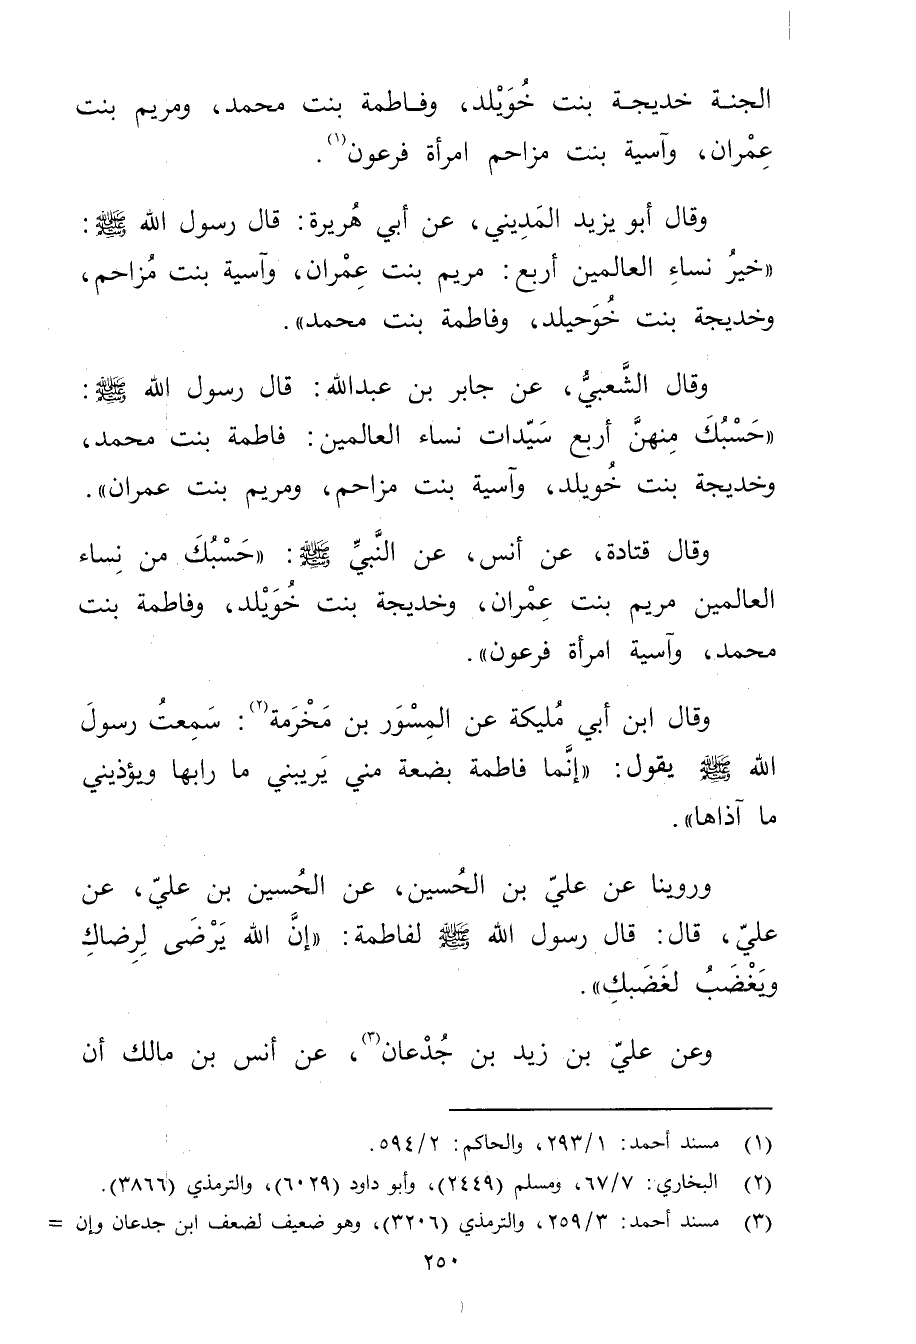 الجنـة خديجـة بنت خُوَيْلد، وفـاطمة بنت محمد، ومريم بنت
عِمْران، وآسية بنت مزاحم امرأة فرعون(١).
وقال أبو يزيد المَدِيني، عن أبي هُريرة: قال رسول الله ﷺ:
«خيرُ نساءِ العالمين أربع: مريم بنت عِمْران، وآسية بنت مُزاحم،
وخديجة بنت خُوَحيلد، وفاطمة بنت محمد».
وقال الشَّعبيُّ، عن جابر بن عبدالله: قال رسول الله ﷺ:
«حَسْبُكَ مِنهنَّ أربع سَيّدات نساء العالمين: فاطمة بنت محمد،
وخديجة بنت خُويلد، وآسية بنت مزاحم، ومريم بنت عمران».
وقال قتادة، عن أنس، عن النَّبيِّ ﷺ: «حَسْبُكَ من نِساء
العالمين مريم بنت عِمْران، وخديجة بنت خُوَيْلد، وفاطمة بنت
محمد، وآسية امرأة فرعون».
وقال ابن أبي مُليكة عن المِسْوَر بن مَخْرَمة(٢): سَمِعتُ رسولَ
الله ﷺ يقول: «إنَّما فاطمة بضعة مني يَريبني ما رابها ويؤذيني
ما آذاها».
وروينا عن عليّ بن الحُسين، عن الحُسين بن عليّ، عن
عليّ، قال: قال رسول الله ﷺ لفاطمة: «إنَّ الله يَرْضَى لِرِضاكِ
ويَغْضَبُ لغَضَبكِ».
وعن عليّ بن زيد بن جُدْعان(٣)، عن أنس بن مالك أن
(١) مسند أحمد: ٢٩٣/١، والحاكم: ٥٩٤/٢.
(٢) البخاري: ٦٧/٧، ومسلم (٢٤٤٩)، وأبو داود (٦٠٢٩)، والترمذي (٣٨٦٦).
(٣) مسند أحمد: ٢٥٩/٣، والترمذي (٣٢٠٦)، وهو ضعيف لضعف ابن جدعان وإن =
٢٥٠